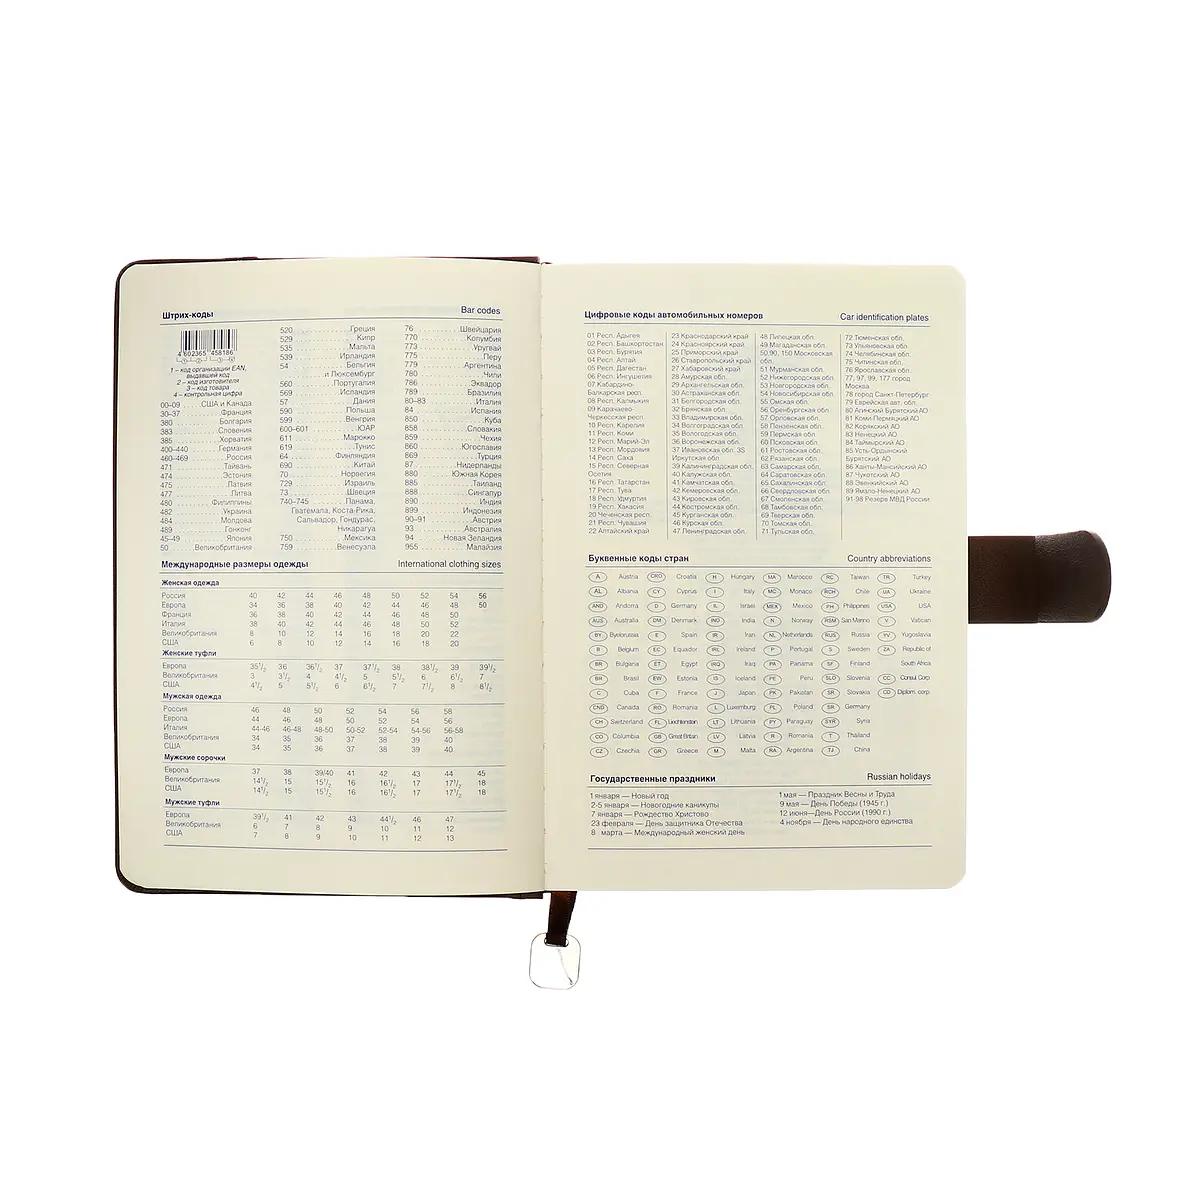 Штрих-коды Bar codes
4 602365 458186
1 – код организации EAN,
выдавшей код
2 – код изготовителя
3 – код товара
4 – контрольная цифра
00–09 США и Канада
30–37 Франция
380 Болгария
383 Словения
385 Хорватия
400–440 Германия
460–469 Россия
471 Тайвань
474 Эстония
475 Латвия
477 Литва
480 Филиппины
482 Украина
484 Молдова
489 Гонконг
45–49 Япония
50 Великобритания
520 Греция
529 Кипр
535 Мальта
539 Ирландия
54 Бельгия
и Люксембург
560 Португалия
569 Исландия
57 Дания
590 Польша
599 Венгрия
600–601 ЮАР
611 Марокко
619 Тунис
64 Финляндия
690 Китай
70 Норвегия
729 Израиль
73 Швеция
740–745 Панама,
Гватемала, Коста-Рика,
Сальвадор, Гондурас,
Никарагуа
750 Мексика
759 Венесуэла
76 Швейцария
770 Колумбия
773 Уругвай
775 Перу
779 Аргентина
780 Чили
786 Эквадор
789 Бразилия
80–83 Италия
84 Испания
850 Куба
858 Словакия
859 Чехия
860 Югославия
869 Турция
87 Нидерланды
880 Южная Корея
885 Таиланд
888 Сингапур
890 Индия
899 Индонезия
90–91 Австрия
93 Австралия
94 Новая Зеландия
955 Малайзия
Международные размеры одежды International clothing sizes
Женская одежда
Россия 40 42 44 46 48 50 52 54 56
Европа 34 36 38 40 42 44 46 48 50
Франция 36 38 40 42 44 46 48 50
Италия 38 40 42 44 46 48 50 52
Великобритания 8 10 12 14 16 18 20 22
США 6 8 10 12 14 16 18 20
Женские туфли
Европа 35 1/2 36 36 1/2 37 37 1/2 38 38 1/2 39 39 1/2
Великобритания 3 3 1/2 4 4 1/2 5 5 1/2 6 6 1/2 7
США 4 1/2 5 5 1/2 6 6 1/2 7 7 1/2 8 8 1/2
Мужская одежда
Россия 46 48 50 52 54 56 58
Европа 44 46 48 50 52 54 56
Италия 44-46 46-48 48-50 50-52 52-54 54-56 56-58
Великобритания 34 35 36 37 38 39 40
США 34 35 36 37 38 39 40
Мужские сорочки
Европа 37 38 39/40 41 42 43 44 45
Великобритания 14 1/2 15 15 1/2 16 16 1/2 17 17 1/2 18
США 14 1/2 15 15 1/2 16 16 1/2 17 17 1/2 18
Мужские туфли
Европа 39 1/2 41 42 43 44 1/2 46 47
Великобритания 6 7 8 9 10 11 12
США 7 8 9 10 11 12 13
Цифровые коды автомобильных номеров Car identification plates
01 Респ. Адыгея
02 Респ. Башкортостан
03 Респ. Бурятия
04 Респ. Алтай
05 Респ. Дагестан
06 Респ. Ингушетия
07 Кабардино-
Балкарская респ.
08 Респ. Калмыкия
09 Карачаево-
Черкесская респ.
10 Респ. Карелия
11 Респ. Коми
12 Респ. Марий-Эл
13 Респ. Мордовия
14 Респ. Саха
15 Респ. Северная
Осетия
16 Респ. Татарстан
17 Респ. Тува
18 Респ. Удмуртия
19 Респ. Хакасия
20 Чеченская респ.
21 Респ. Чувашия
22 Алтайский край
23 Краснодарский край
24 Красноярский край
25 Приморский край
26 Ставропольский край
27 Хабаровский край
28 Амурская обл.
29 Архангельская обл.
30 Астраханская обл.
31 Белгородская обл.
32 Брянская обл.
33 Владимирская обл.
34 Волгоградская обл.
35 Вологодская обл.
36 Воронежская обл.
37 Ивановская обл. 3S
Иркутская обл
39 Калининградская обл.
40 Калужская обл.
41 Камчатская обл.
42 Кемеровская обл.
43 Кировская обл.
44 Костромская обл.
45 Курганская обл.
46 Курская обл.
47 Ленинградская обл.
48 Липецкая обл.
49 Магаданская обл.
50,90, 150 Московская
обл.
51 Мурманская обл.
52 Нижегородская обл.
53 Новгородская обл.
54 Новосибирская обл.
55 Омская обл.
56 Оренбургская обл.
57 Орловская обл.
58 Пензенская обл.
59 Пермская обл.
60 Псковская обл.
61 Ростовская обл.
62 Рязанская обл.
63 Самарская обл.
64 Саратовская обл.
65 Сахалинская обл.
66 Свердловская обл.
67 Смоленская обл.
68 Тамбовская обл.
69 Тверская обл.
70 Томская обл.
71 Тульская обл.
72 Тюменская обл.
73 Ульяновская обл.
74 Челябинская обл.
75 Читинская обл.
76 Ярославская обл.
77, 97, 99, 177 город
Москва
78 город Санкт-Петербург
79 Еврейская авт. обл.
80 Агинский Бурятский АО
81 Коми-Пермяцкий АО
82 Корякский АО
83 Ненецкий АО
84 Таймырский АО
85 Усть-Ордынский
Бурятский АО
86 Ханты-Мансийский АО
87 Чукотский АО
88 Эвенкийский АО
89 Ямало-Ненецкий АО
91-98 Резерв МВД России
Буквенные коды стран Country abbreviations
A Austria CRO Croatia H Hungary MA Marocco RC Taiwan TR Turkey
AL Albania CY Cyprus I Italy MC Monaco RCH Chile UA Ukraine
AND Andorra D Germany IL Israel MEX Mexico PH Philippines USA USA
AUS Australia DM Denmark IND India N Norway RSM San Marino V Vatican
BY Byelorussia E Spain IR Iran NL Netherlands RUS Russia YV Yugoslavia
B Belgium EC Equador IRL Ireland P Portugal S Sweden ZA Republic of
BR Bulgaria ET Egypt IRQ Iraq PA Panama SF Finland South Africa
BR Brasil EW Estonia IS Iceland PE Peru SLO Slovenia CC Consul. Corp
C Cuba F France J Japan PK Pakistan SR Slovakia CD Diplom. corp.
CND Canada RO Romania L Luxemburg PL Poland SR Germany
CH Switzerland FL Liechtenstein LT Lithuania PY Paraguay SYR Syria
CO Columbia GB Great Britain LV Latvia R Romania T Thailand
CZ Czechia GR Greece M Malta RA Argentina TJ China
Государственные праздники Russian holidays
1 января — Новый год
2-5 января — Новогодние каникулы
7 января — Рождество Христово
23 февраля — День защитника Отечества
8 марта — Международный женский день
1 мая — Праздник Весны и Труда
9 мая — День Победы (1945 г.)
12 июня—День России (1990 г.)
4 ноября — День народного единства